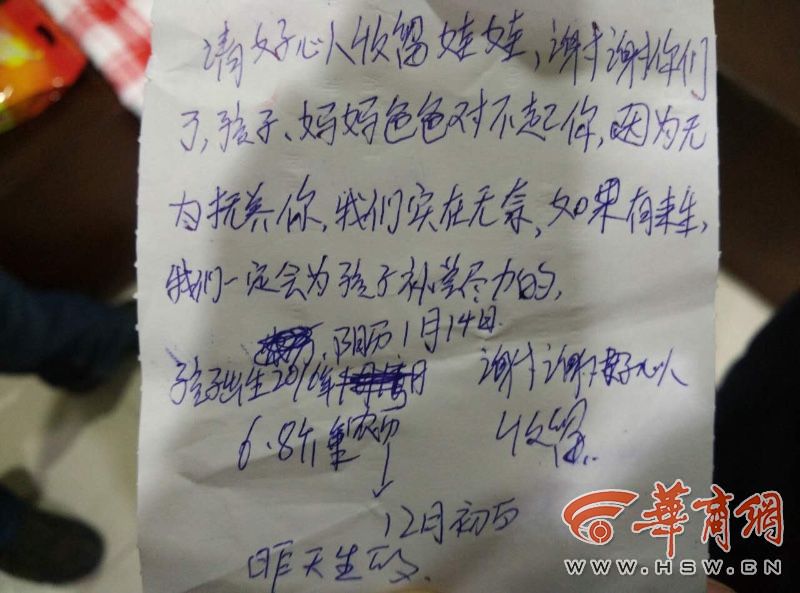 请好心人收留娃娃,谢谢你们
了,孩子、妈妈爸爸对不起你,因为无
力抚养你,我们实在无奈,如果有来生,
我们一定会为孩子补尝尽力的,
阳历1月14日
孩子出生2016年
谢谢好心人
6.8斤 农历
收留.
12月初五
昨天生的.
華商網
WWW.HSW.CN